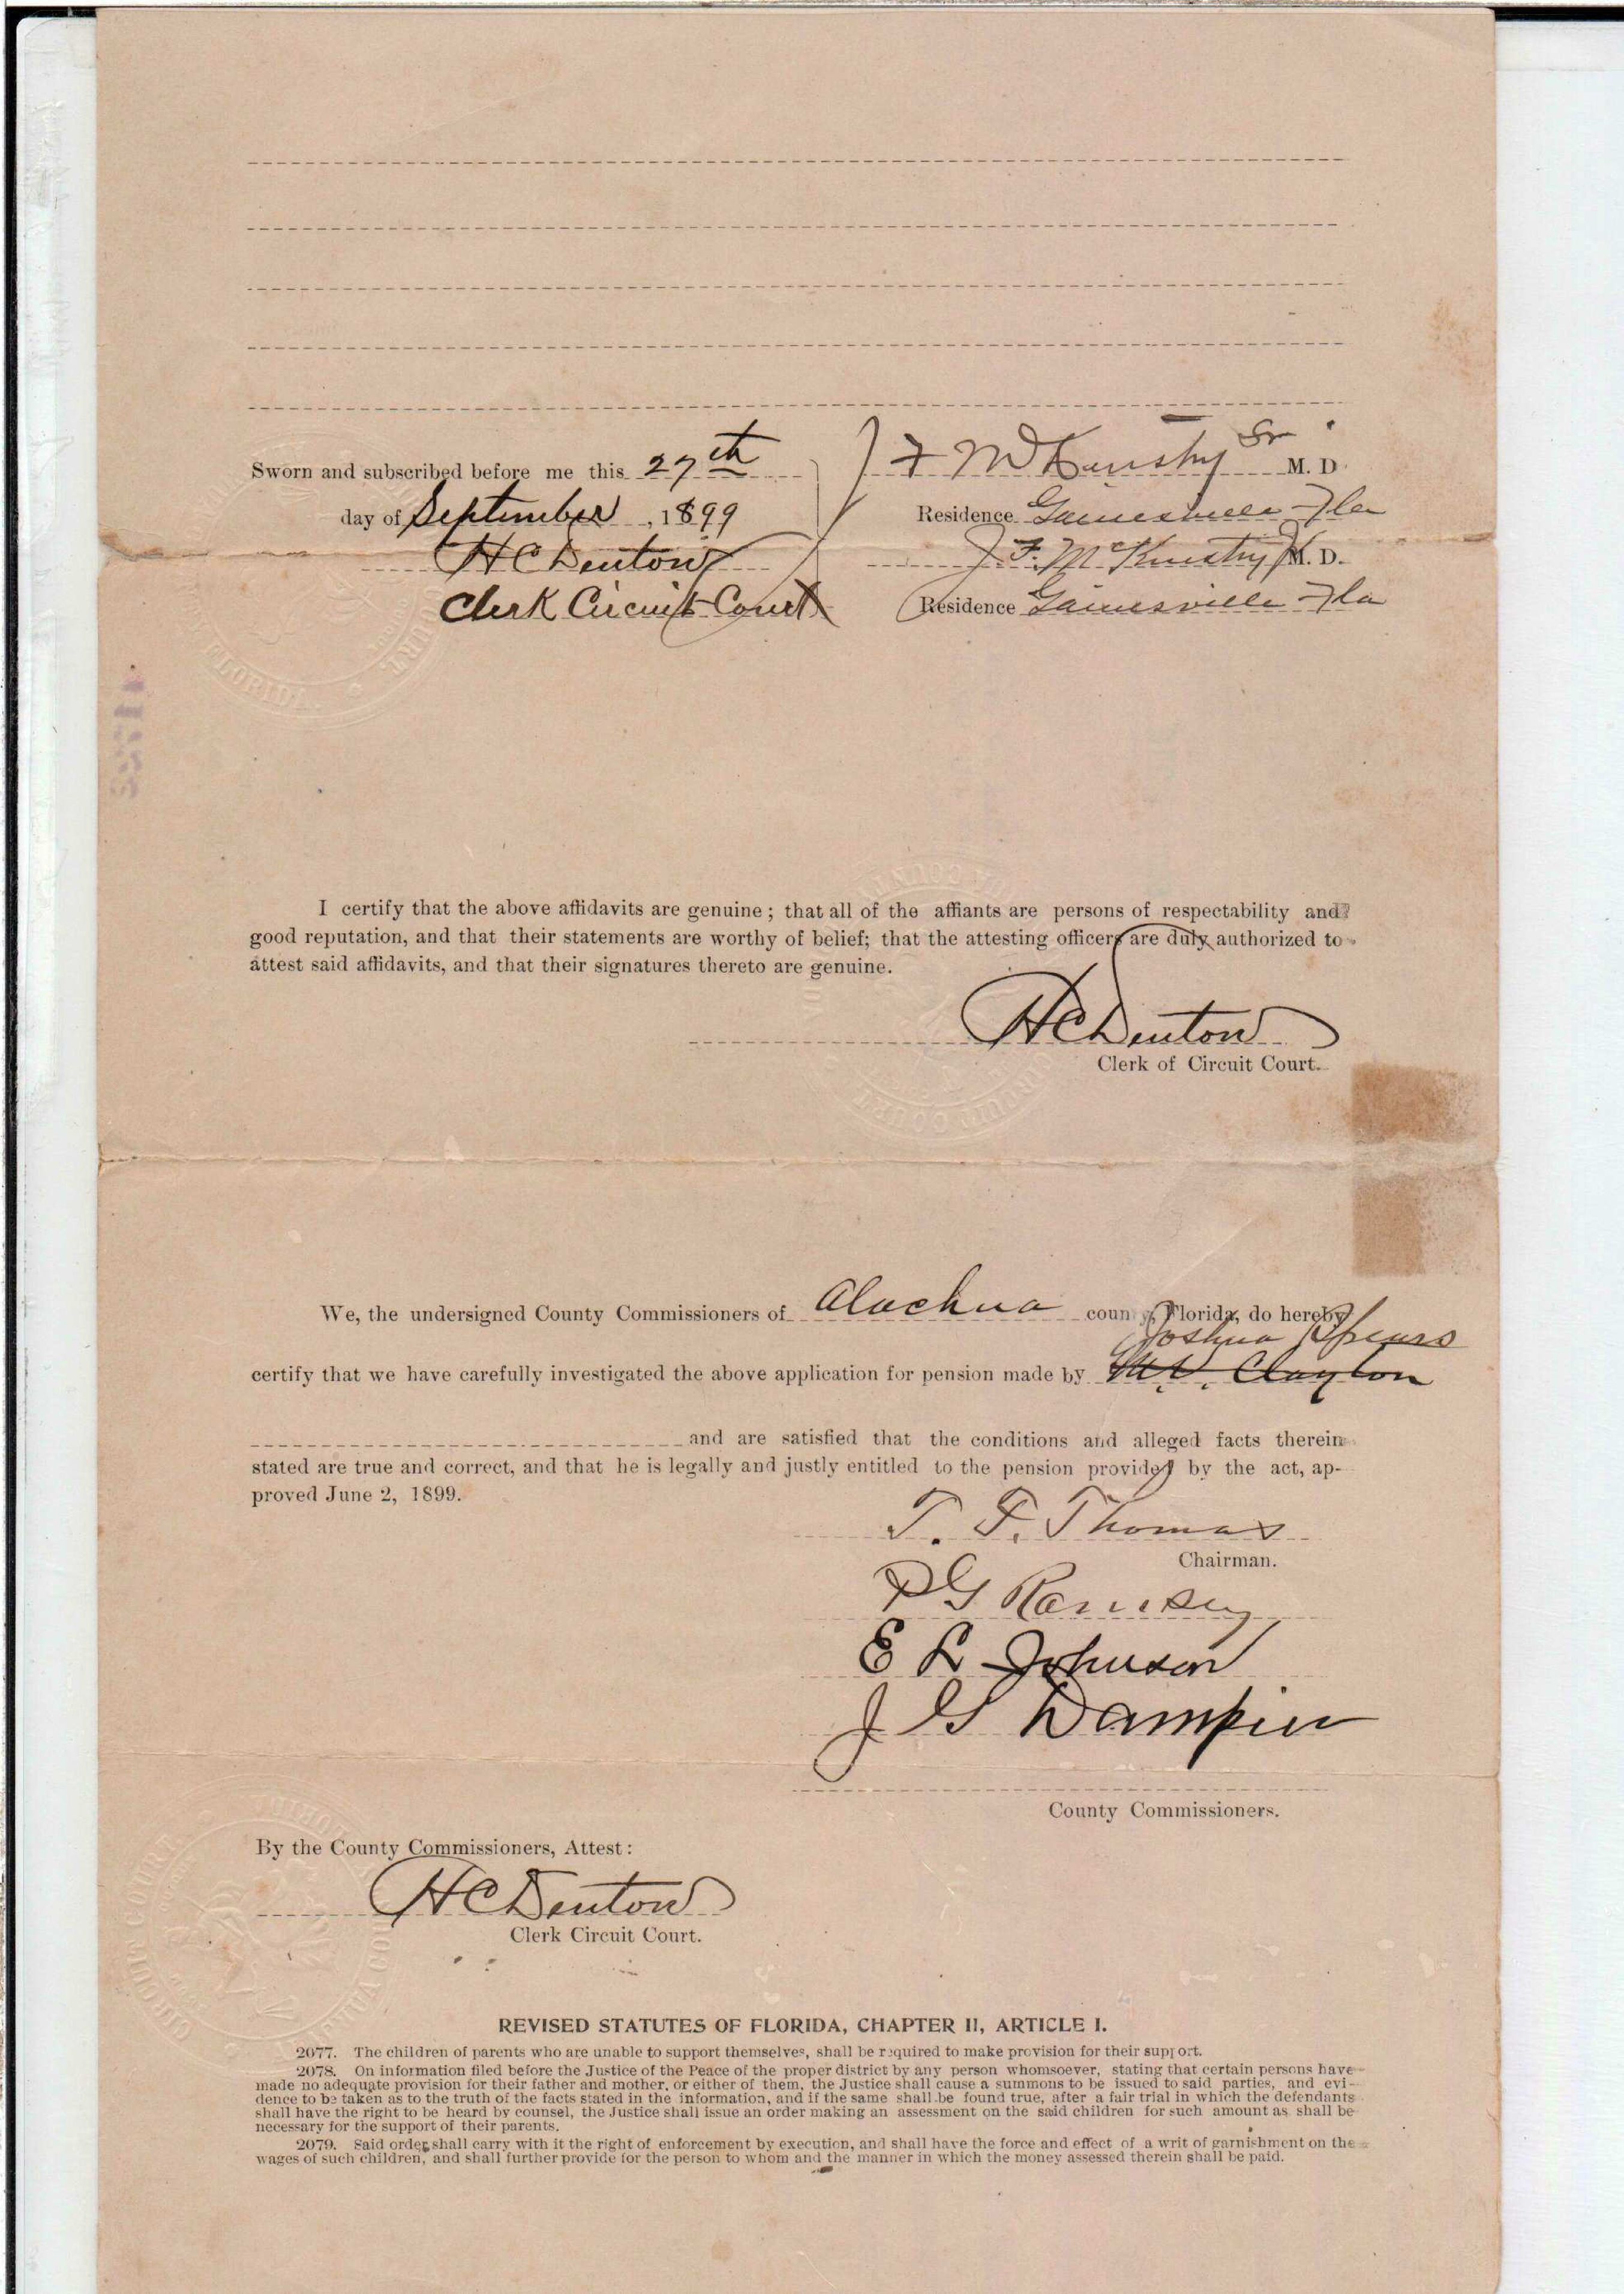 Sworn and subscribed before me this 27th
day of September, 1899
H C Denton
Clerk Circuit Court
J F McKinstry Sr M. D.
Residence Gainesville Fla
J. F. McKinstry Jr M. D.
Residence Gainesville Fla
I certify that the above affidavits are genuine; that all of the affiants are persons of respectability and
good reputation, and that their statements are worthy of belief; that the attesting officers are duly authorized to
attest said affidavits, and that their signatures thereto are genuine.
H C Denton
Clerk of Circuit Court.
We, the undersigned County Commissioners of Alachua county, Florida, do hereby
Joshua Spears
certify that we have carefully investigated the above application for pension made by M. V. Clayton
and are satisfied that the conditions and alleged facts therein
stated are true and correct, and that he is legally and justly entitled to the pension provided by the act, ap-
proved June 2, 1899.
T. F. Thomas
Chairman.
P G Ramsey
E L Johnson
J G Dampier
County Commissioners.
By the County Commissioners, Attest:
H C Denton
Clerk Circuit Court.
REVISED STATUTES OF FLORIDA, CHAPTER II, ARTICLE I.
2077. The children of parents who are unable to support themselves, shall be required to make provision for their support.
2078. On information filed before the Justice of the Peace of the proper district by any person whomsoever, stating that certain persons have
made no adequate provision for their father and mother, or either of them, the Justice shall cause a summons to be issued to said parties, and evi-
dence to be taken as to the truth of the facts stated in the information, and if the same shall be found true, after a fair trial in which the defendants
shall have the right to be heard by counsel, the Justice shall issue an order making an assessment on the said children for such amount as shall be
necessary for the support of their parents.
2079. Said order shall carry with it the right of enforcement by execution, and shall have the force and effect of a writ of garnishment on the
wages of such children, and shall further provide for the person to whom and the manner in which the money assessed therein shall be paid.